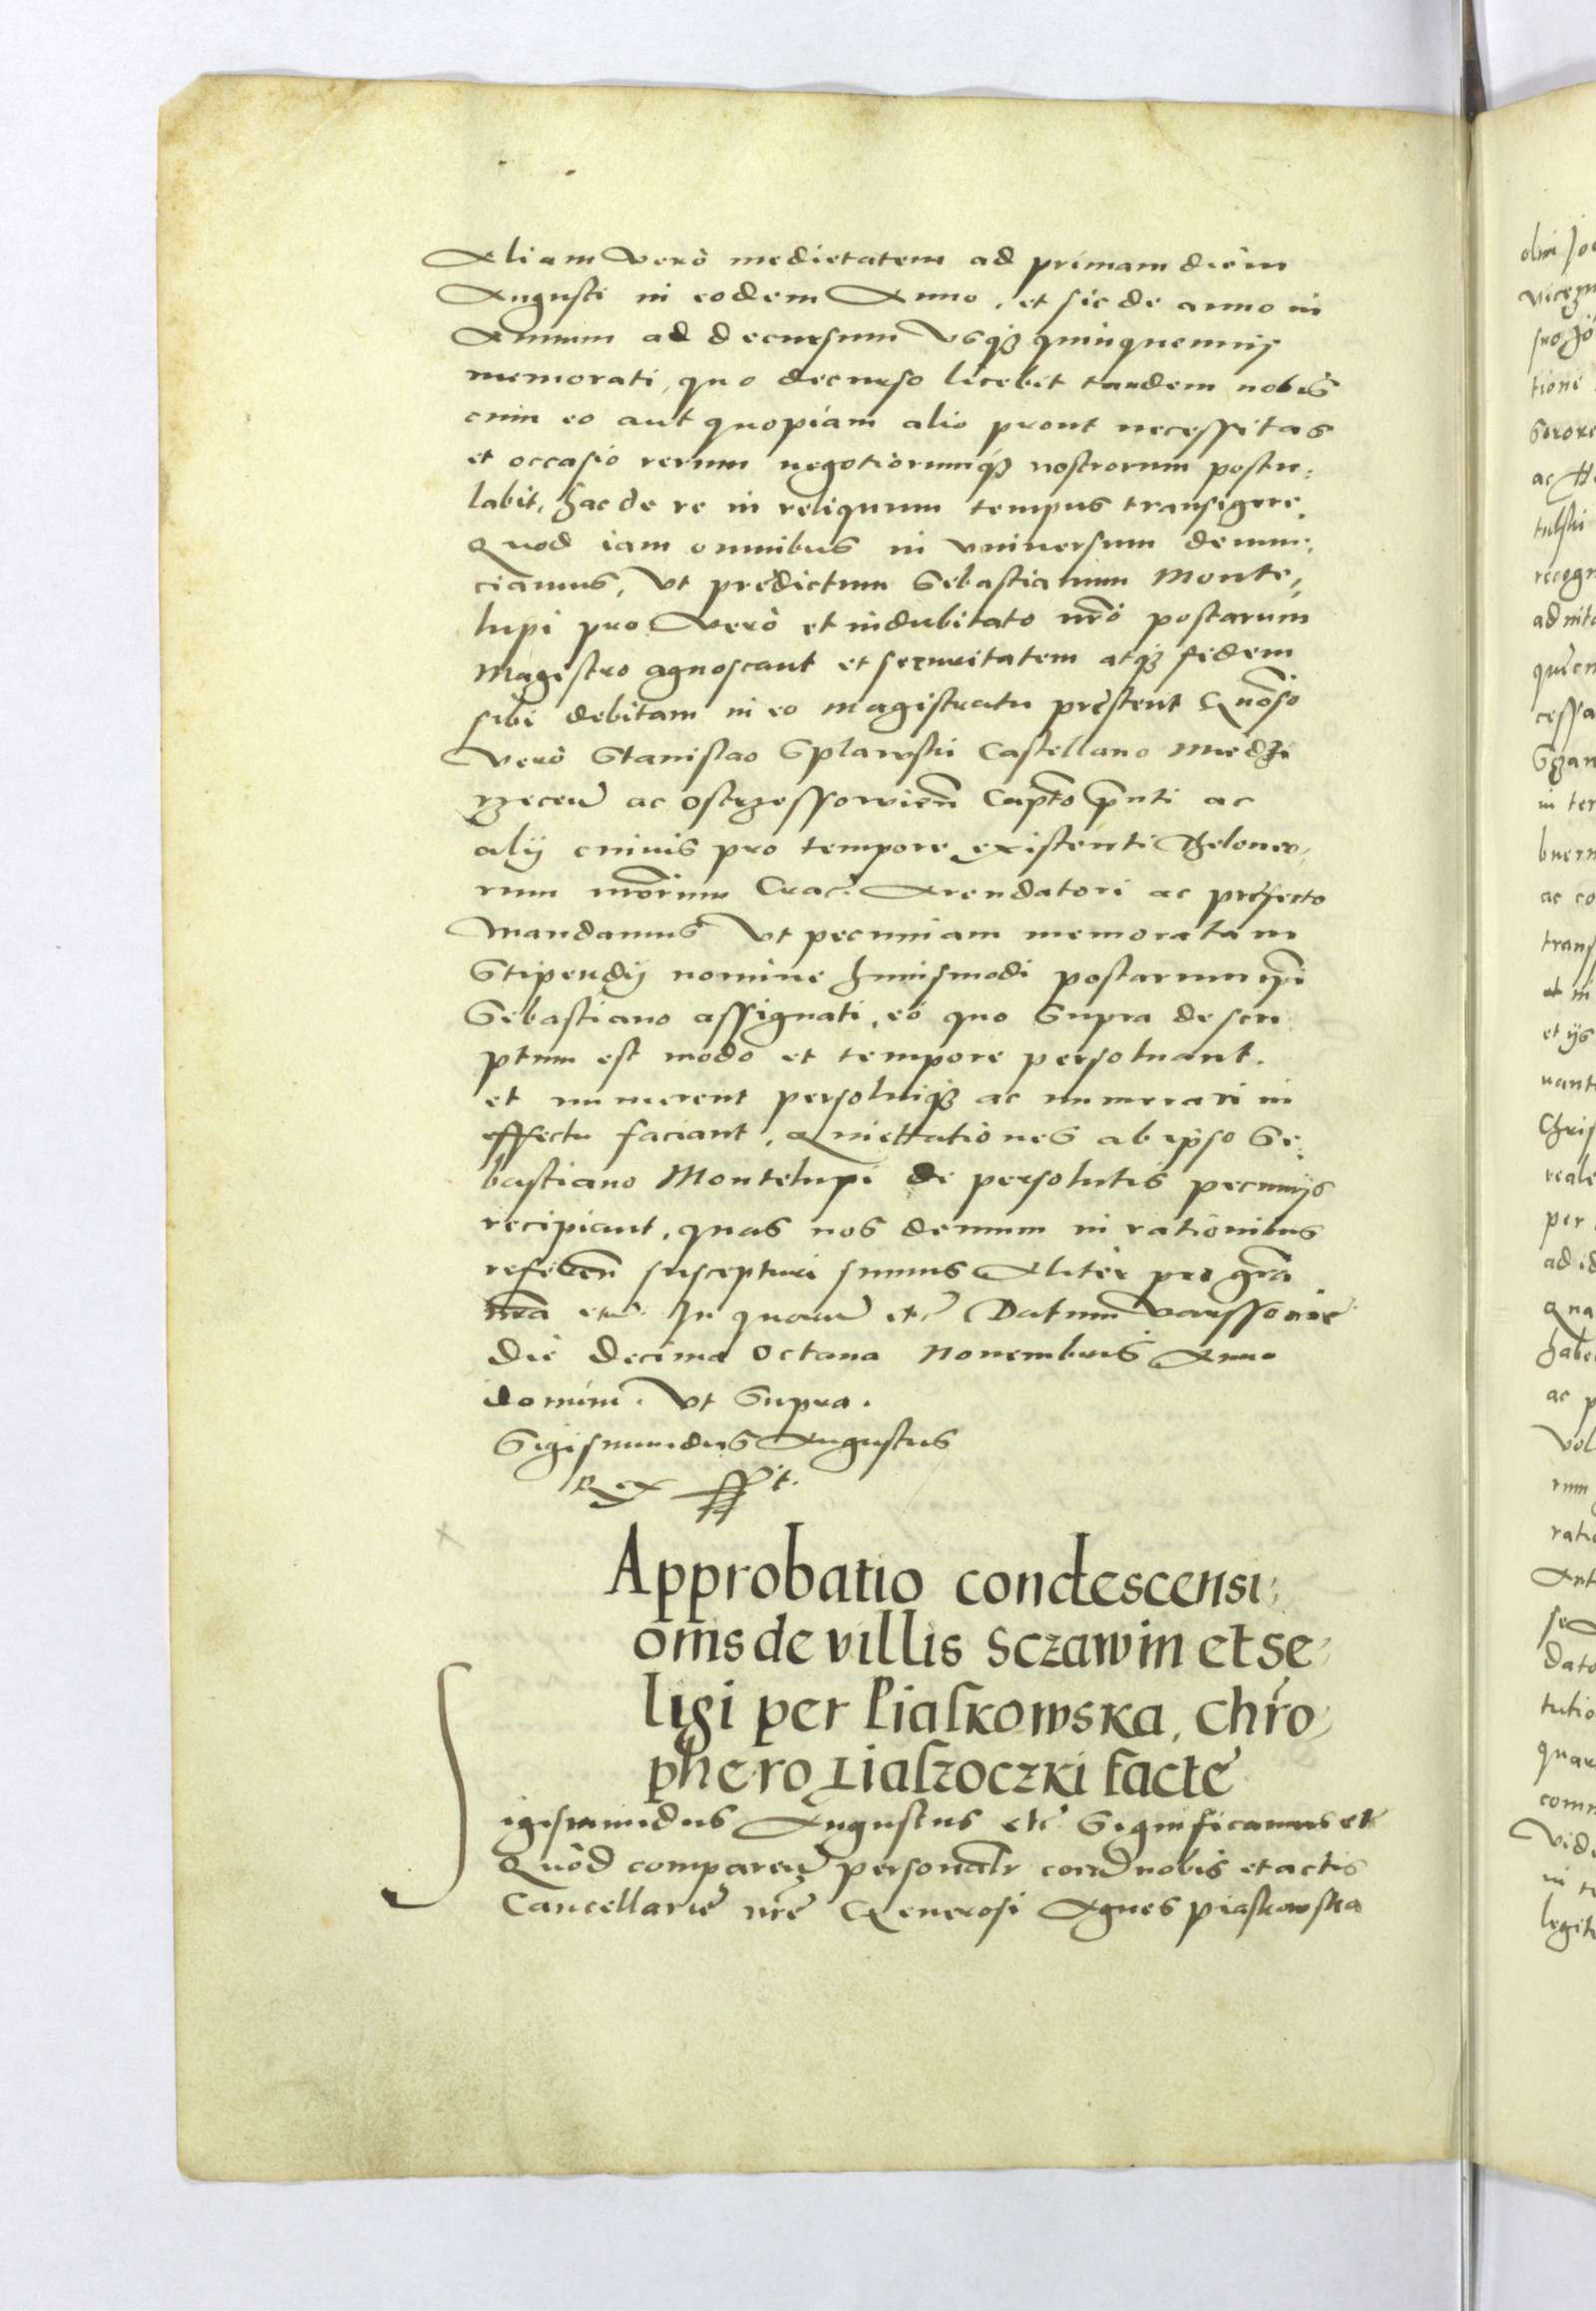 Aliam verò medietatem ad primam diem
Augusti in eodem Anno, et sic de anno in
Annum ad decursum vsq3 quinquennij
memorati, quo decurso licebit tandem nobis
cum eo aut quopiam alio prout necessitas
et occasio rerum negotiorumq3 nostrorum postu:
labit, hac de re in reliquum tempus transigere.
Quod iam omnibus in vniuersum denun:
ciamus, vt predictum Sebastianum Monte,
lupi pro vero et indubitato nr̃o postarum
Magistro agnoscant et securitatem atq3 fidem
sibi debitam in eo magistratu prestent Gnõso
vero Stanislao Splawski Castellano Miedzi
rzecen̄ ac Ostrzessowien̄ Capto pn̄ti ac
alij cuiuis pro tempore existenti Theloneo,
rum nr̃orum Crac. Arendatori ac prefecto
Mandamus vt pecuniam memoratam
Stipendij nomine huiusmodi postarum ipsi
Sebastiano assignati, eo quo supra descri
ptum est modo et tempore persoluant.
et numerent persoluiq3 ac numerari in
effectu faciant, Quiettationes ab ipso Se:
bastiano Montelupi de persolutis pecunijs
recipiant, quas nos demum in rationibus
referen̄ suscepturi sumus Aliter pro gr̃a
nr̃a etc̄. In quorū etc̄ Datum Varssouie
die decima Octaua Nouembris Anno
domini. Vt Supra.
Sigismundus Augustus
Rex sst.
Approbatio condescensi,
onis de villis Sczawin et Se,
ligi per Piaskowska, Chr̃o,
phero Liaszoczki facte
Sigismundus Augustus etc̄ Significamus etc̄
Quod comparen̄ personalr coram nobis et actis
Cancellarie nr̃e Generosi Agnes Piaskowska
olim Jo
tione
Soror
ac He
recogn
cessa
in ter
ac co
trans
et in
et ijs
Chris
reale
per
ad id
Qua
habe
ac p
Vol
rum
rati
Ant
dato
tutio
quar
comm
Vide